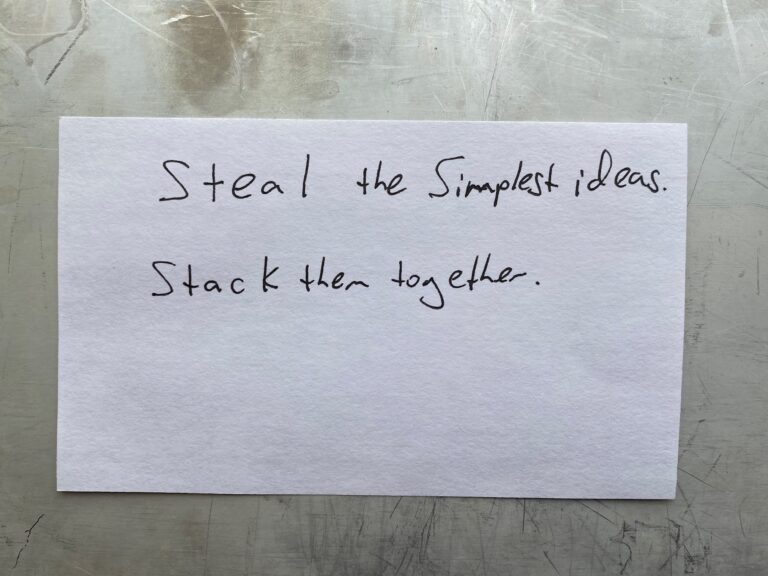 Steal the Simplest ideas.
Stack them together.